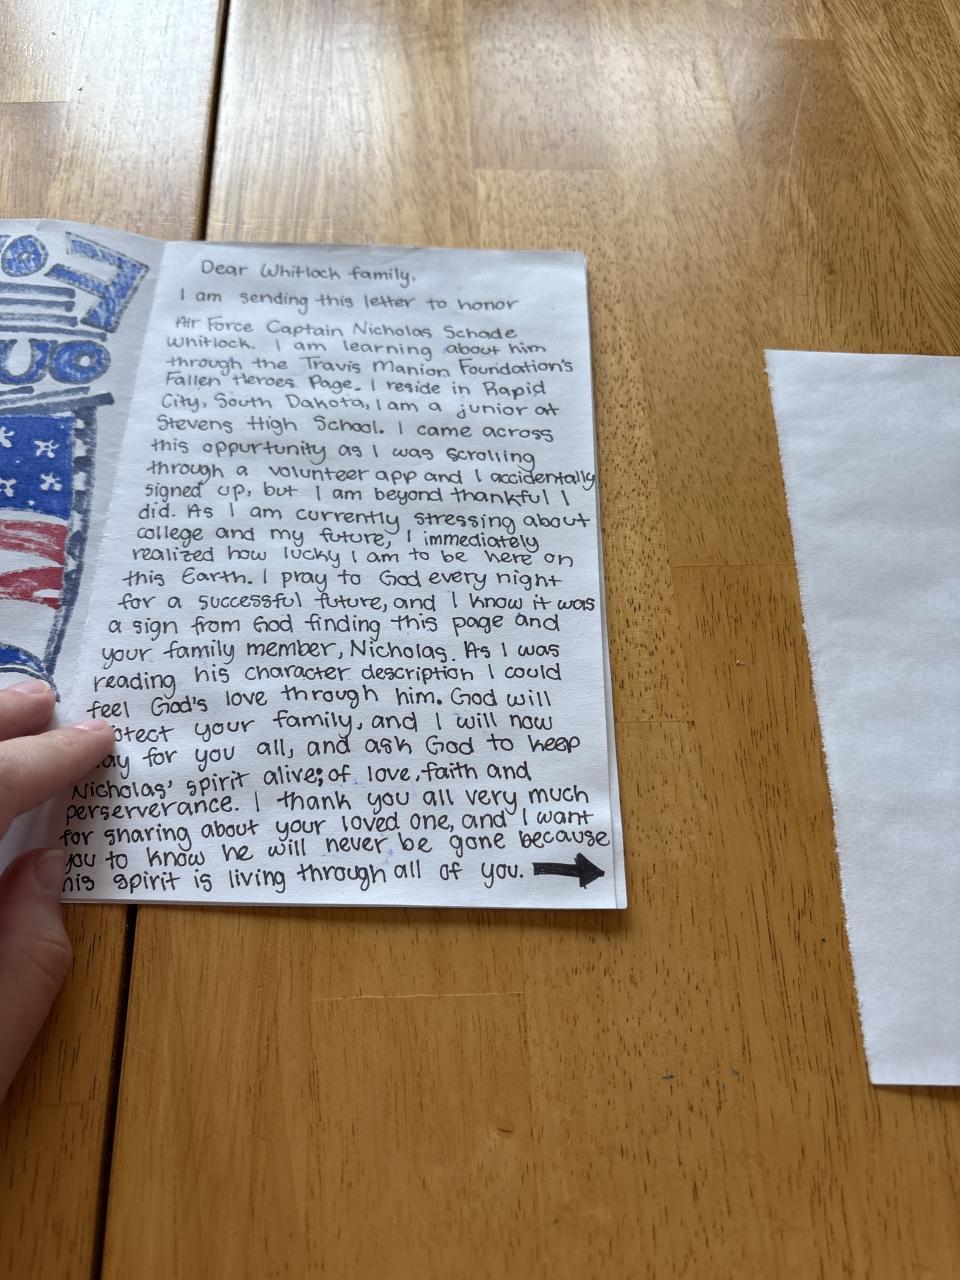 Dear Whitlock family,
I am sending this letter to honor
Air Force Captain Nicholas Schade
Whitlock. I am learning about him
through the Travis Manion Foundation's
Fallen Heroes Page. I reside in Rapid
City, South Dakota, I am a junior at
Stevens High School. I came across
this oppurtunity as I was scrolling
through a volunteer app and I accidentally
signed up, but I am beyond thankful I
did. As I am currently stressing about
college and my future, I immediately
realized how lucky I am to be here on
this Earth. I pray to God every night
for a successful future, and I know it was
a sign from God finding this page and
your family member, Nicholas. As I was
reading his character description I could
feel God's love through him. God will
otect your family, and I will now
ay for you all, and ask God to keep
Nicholas' spirit alive; of love, faith and
perserverance. I thank you all very much
for sharing about your loved one, and I want
you to know he will never be gone because
his spirit is living through all of you.